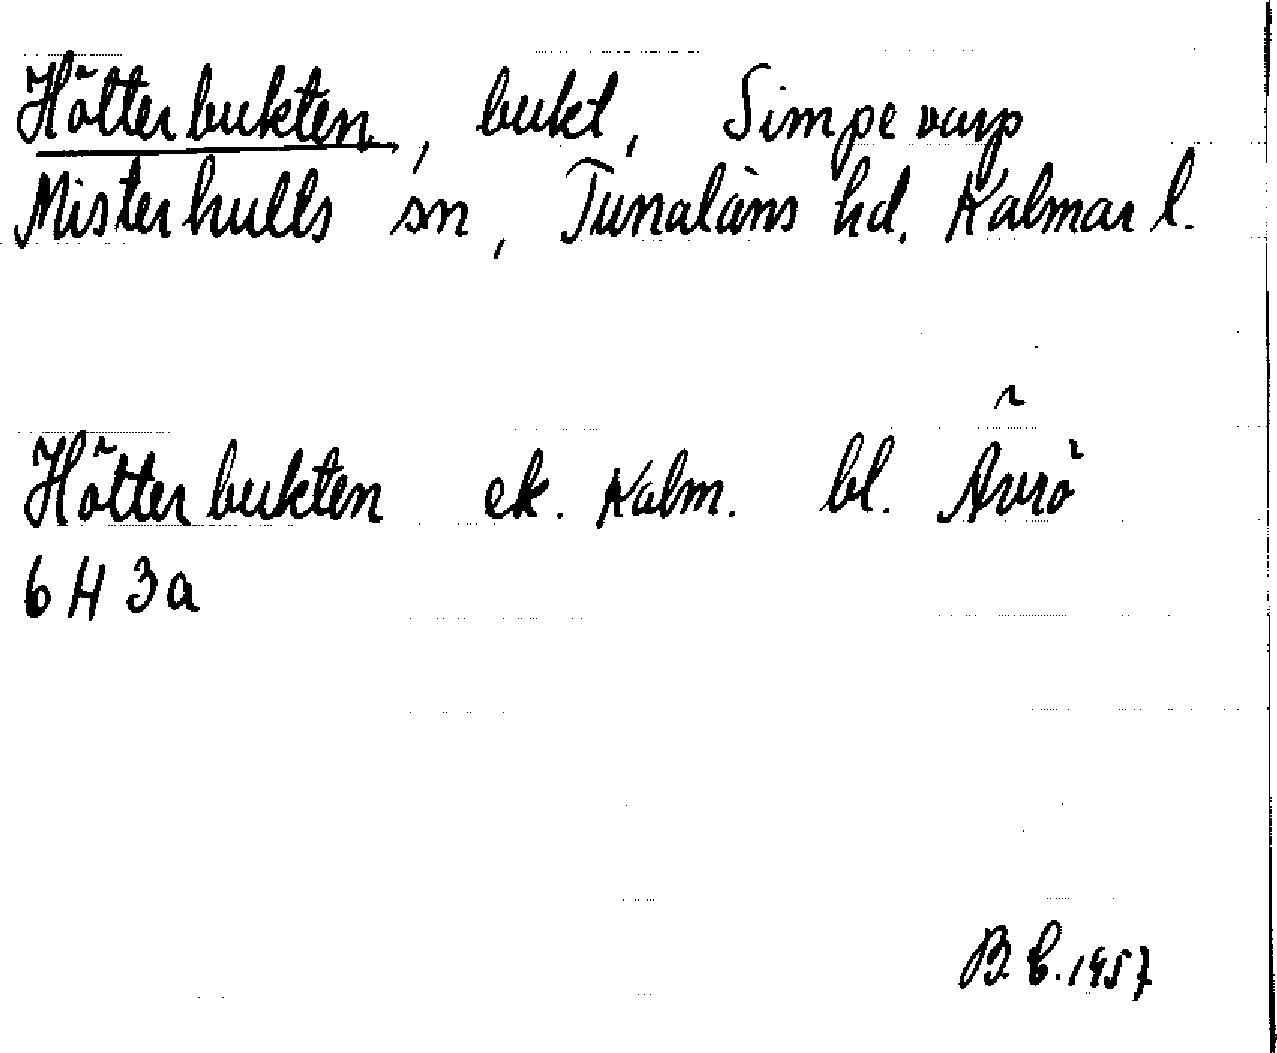 Hötterbukten, bukt, Simpevarp
Misterhults sn, Tunaläns hd. Kalmar l.
Hötterbukten ek. Kalm. bl. Ävrö
6 H 3a
B.E. 1957